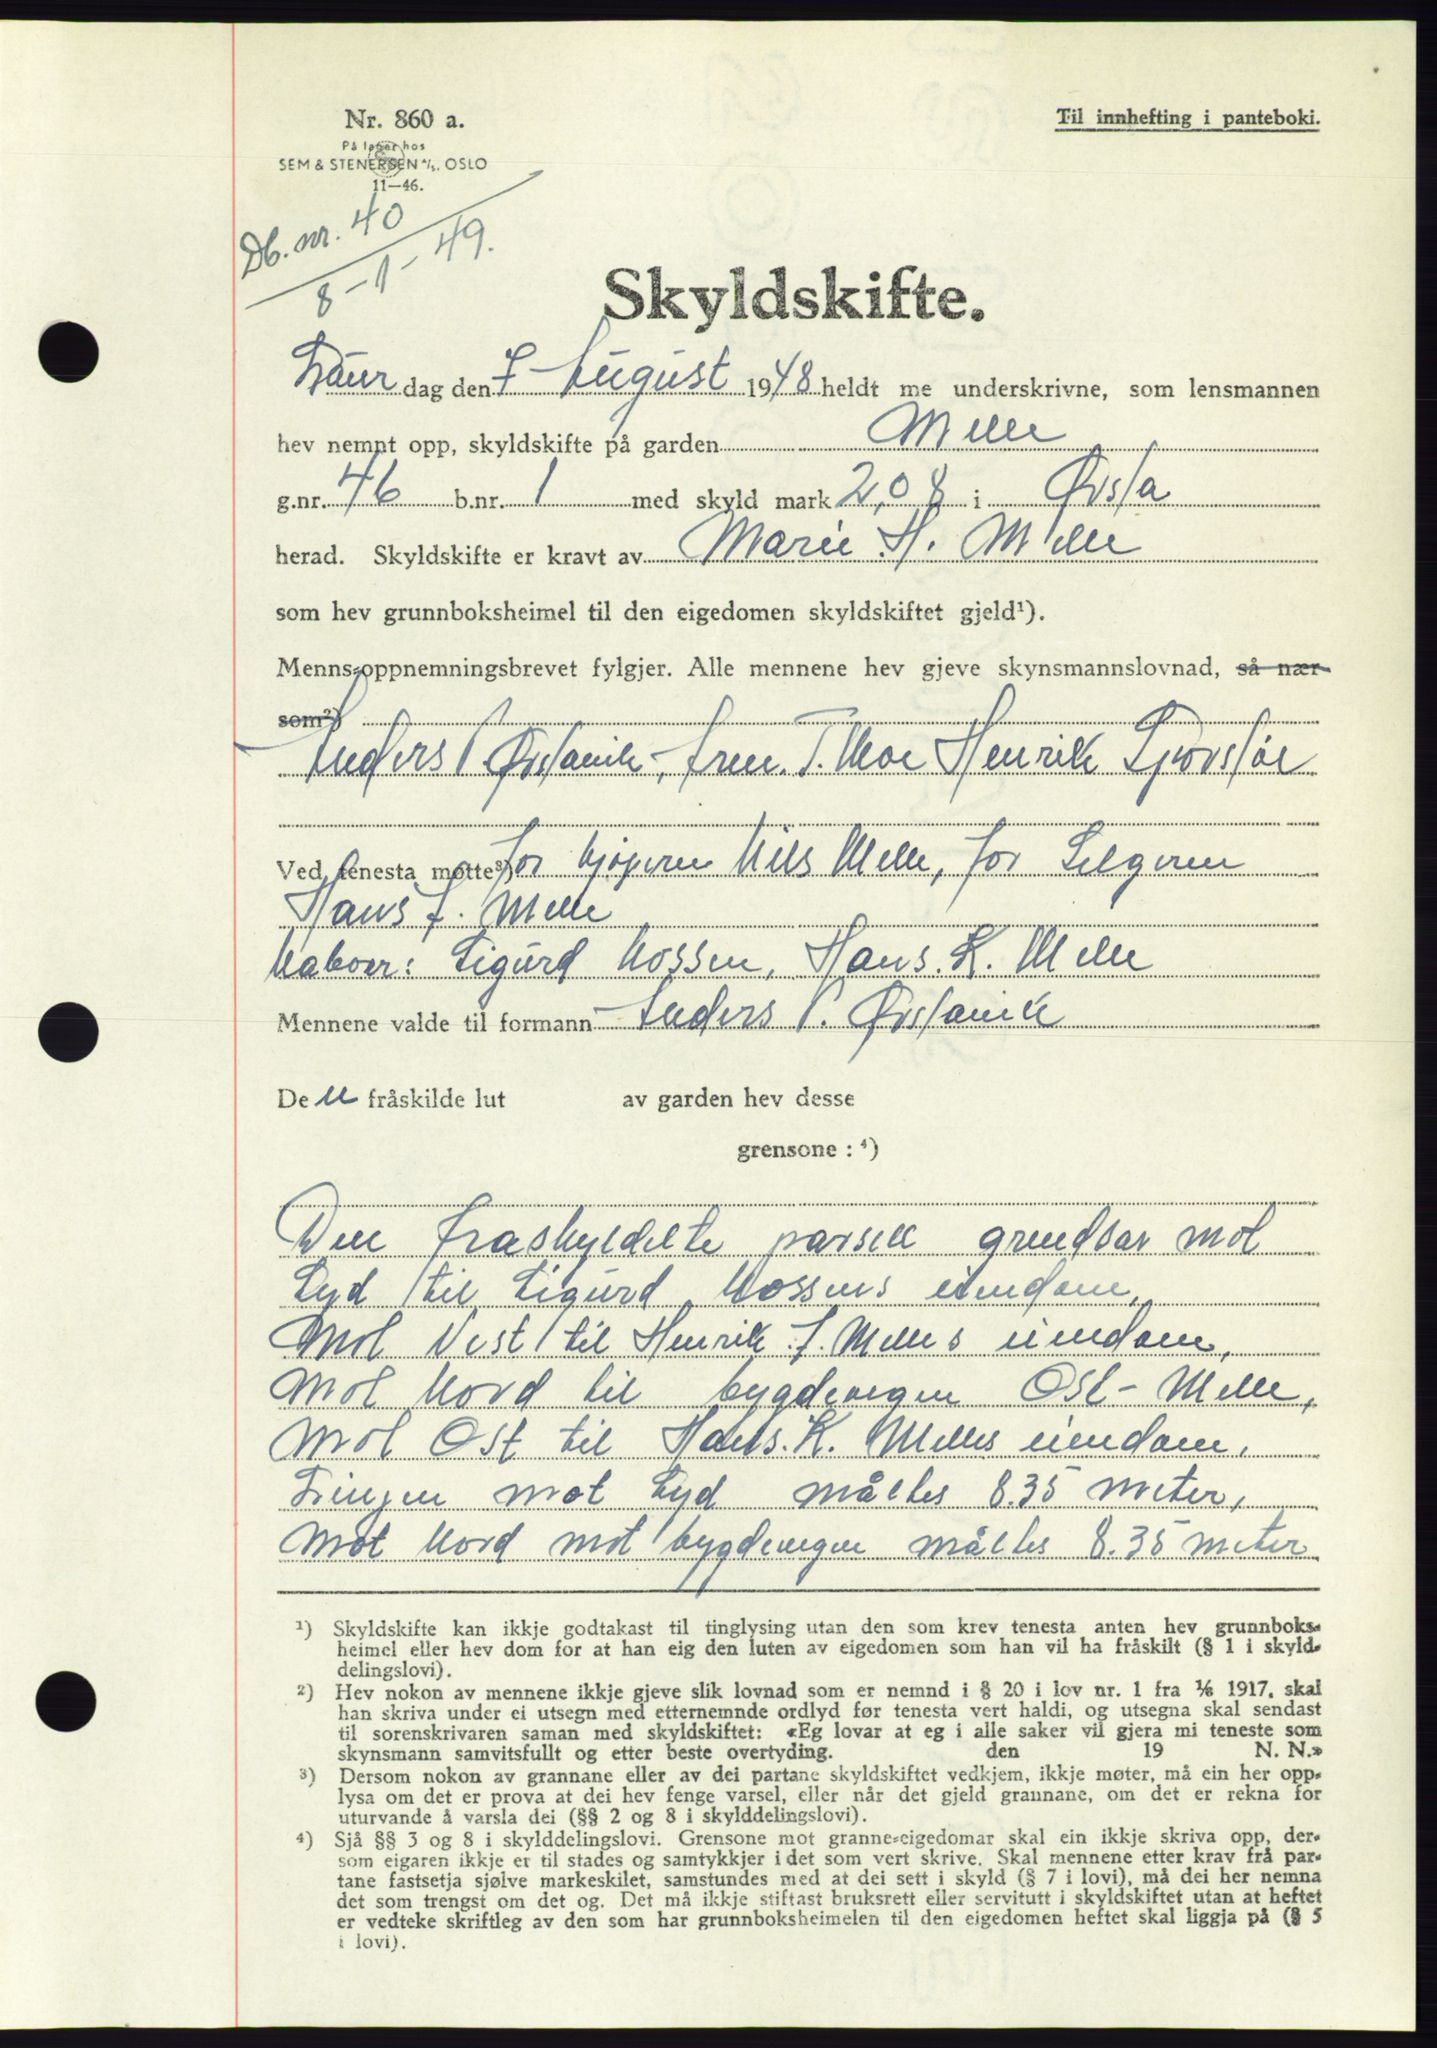 Nr. 860 a.
På lager hos
SEM & STENERSEN A/S, OSLO
11—46.
Til innhefting i panteboki.
Db. nr. 40
8 - 1 - 49.
Skyldskifte.
Laur dag den 7 August 1948 heldt me underskrivne, som lensmannen
hev nemnt opp, skyldskifte på garden Melle
g.nr. 46 b.nr. 1 med skyld mark 2,08 i Ørsta
herad. Skyldskifte er kravt av Marie H. Melle
som hev grunnboksheimel til den eigedomen skyldskiftet gjeld¹).
Menns-oppnemningsbrevet fylgjer. Alle mennene hev gjeve skynsmannslovnad, så nær
som²)
Anders P. Ørstavik, T. Moe Henrik
Ved tenesta møtte³) for kjøperen Nils Melle, for Selgeren
Hans J. Melle
Naboer: Sigurd Mossen, Hans. K. Melle
Mennene valde til formann Anders P. Ørstavik
De n fråskilde lut av garden hev desse
grensone : ⁴)
Den fraskyldelte parsell grendsar mot
Syd til Sigurd Mossens eiendom,
Mot Vest til Henrik J. Melles eiendom,
Mot Nord til bygdevegen Ost - Melle,
Mot Ost til Hans. K. Melles eiendom,
Linjen mot Syd måltes 8.35 meter,
Mot Nord mot bygdevegen måltes 8.35 meter
¹) Skyldskifte kan ikkje godtakast til tinglysing utan den som krev tenesta anten hev grunnboks-
heimel eller hev dom for at han eig den luten av eigedomen som han vil ha fråskilt (§ 1 i skyld-
delingslovi).
²) Hev nokon av mennene ikkje gjeve slik lovnad som er nemnd i § 20 i lov nr. 1 fra 1/6 1917, skal
han skriva under ei utsegn med etternemnde ordlyd før tenesta vert haldi, og utsegna skal sendast
til sorenskrivaren saman med skyldskiftet: «Eg lovar at eg i alle saker vil gjera mi teneste som
skynsmann samvitsfullt og etter beste overtyding. den 19 N. N.»
³) Dersom nokon av grannane eller av dei partane skyldskiftet vedkjem, ikkje møter, må ein her opp-
lysa om det er prova at dei hev fenge varsel, eller når det gjeld grannane, om det er rekna for
uturvande å varsla dei (§§ 2 og 8 i skylddelingslovi).
⁴) Sjå §§ 3 og 8 i skylddelingslovi. Grensone mot granne-eigedomar skal ein ikkje skriva opp, der-
som eigaren ikkje er til stades og samtykkjer i det som vert skrive. Skal mennene etter krav frå par-
tane fastsetja sjølve markeskilet, samstundes med at dei sett i skyld (§ 7 i lovi), må dei her nemna
det som trengst om det og. Det må ikkje stiftast bruksrett eller servitutt i skyldskiftet utan at heftet
er vedteke skriftleg av den som har grunnboksheimelen til den eigedomen heftet skal liggja på (§ 5
i lovi).